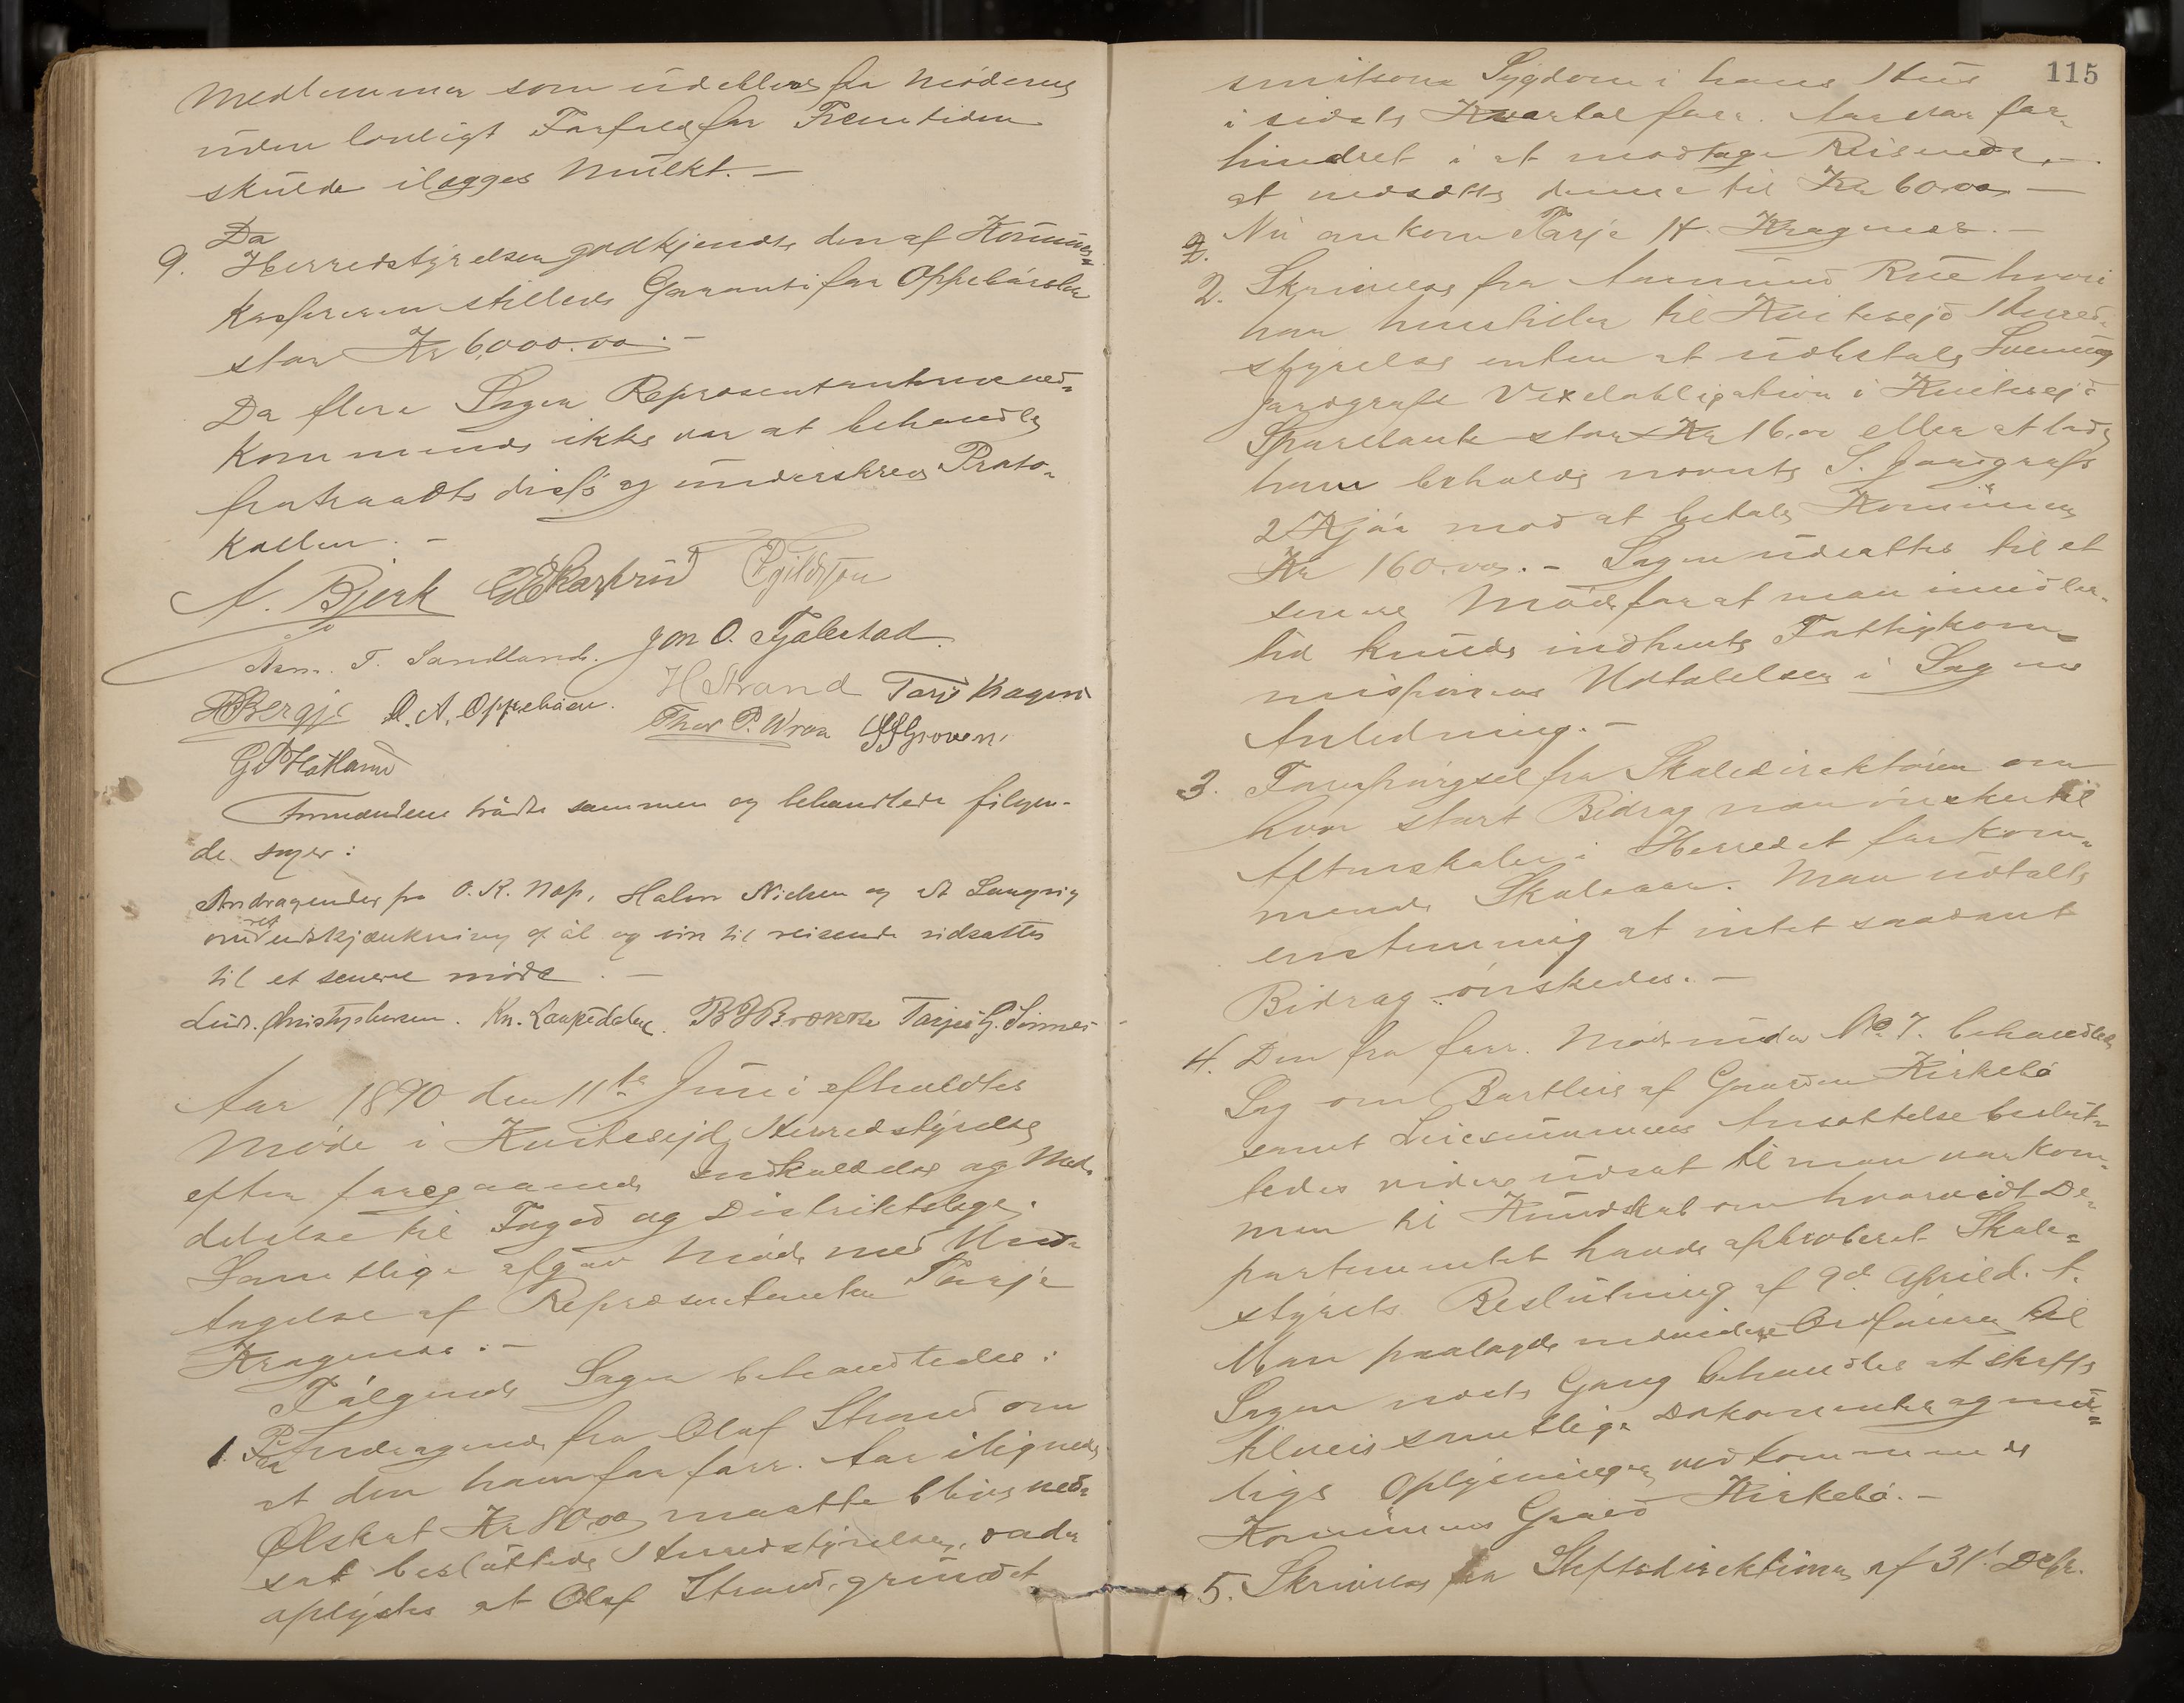 Medlemmer som udeblev fra Møderne
uden lovligt Forfald for Fremtiden
skulde ilægges Mulkt. —
Da
9. Herredstyrelsen godkjendte den af Kommune=
kassereren stillede Garanti for Oppebørsler
stor Kr 6,000.00. —
Da flere Sager Repræsentanterne ved-
kommende ikke var at behandle
fratraadte disse og underskrev Proto-
kollen. —
A. Bjerk Egildson
Aan. T. Sandland. Jon O. Fjalestad.
H Strand Tarje Kragnæs
Bergje O. A. Oppebøen.
Thor P. Wraa Groven.
G Hotland
Formændene traadte sammen og behandlede følgen-
de sager:
Andragender fra O. K. Nap, Halvor Nielsen og A Langvig
om ret udskjænkning af øl og vin til reisende udsattes
til et senere møde. —
Ludv. Christophersen. Kn. Laupedalen. B Brokke Tarjei G. Sinnes
Aar 1890 den 11te Juni afholdtes
Møde i Kviteseid Herredstyrelse
efter foregaaende Indkaldelse og Med-
delelse til Foged og Distriktslæge.
Samtlige afgav Møde med Und-
tagelse af Repræsentanten Tarje
Kragnæs. —
Følgende Sager behandledes:
1. Paa Andragende fra Olaf Strand om
at den ham for forr. Aar ilignede
Ølskat Kr 80,00 maatte blive ned-
sat besluttede Herredstyrelsen, da det
oplystes at Olaf Strand grundet
115
smitsom Sygdom i hans Hus
i sidste Kvartal forr. Aar var for-
hindret i at modtage Reisende, —
at nedsætte denne til Kr 60.00 —
2. Nu ankom Tarje H. Kragnæs. —
2. Skrivelse fra Aamund Rue hvori
han henstiller til Kviteseid Herred-
styrelse enten at udbetale Svenung
Jordgrafs Vexelobligation i Kviteseid
Sparebank stor Kr 16.00 eller at lade
ham beholde nævnte S. Jordgrafs
2 Kjør mod at betale Kommunen
Kr 160.00. — Sagen udsattes til et
senere Møde for at man imidler-
tid kunde indhente Fattigkom-
missionens Udtalelser i Sagens
Anledning. —
3. Forespørgsel fra Skoledirektøren om
hvor stort Bidrag man ønsker til
Aftenskoler i Herredet for kom-
mende Skoleaar. Man udtalte
enstemmig at intet saadant
Bidrag ønskedes. —
4. Den fra forr. Møde under No 7. behandlede
Sag om Bortleie af Gaarden Kirkebø
samt Leiesummens Ansættelse beslut-
tedes videre udsat til man var kom-
men til Kundskab om hvorvidt De-
partementet havde approberet Skole-
styrets Beslutning af 9de April d. A.
Man paalagde Ordføreren til
Sagen næste Gang behandles at skaffe
tilveie samtlige Dokumenter og mu-
lige Oplysninger vedkommende
Kommunens Gaard Kirkebø. —
5. Skrivelse fra Stiftsdirektionen af 31te Decbr.